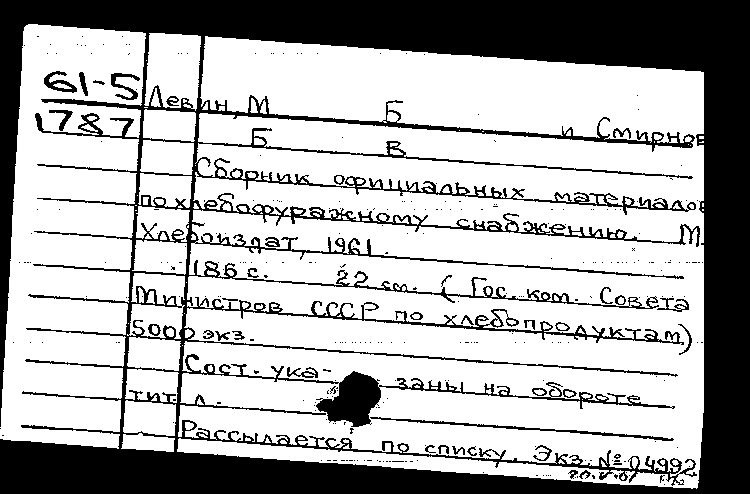 61-5
1787
Левин, М Б и Смирнов
Б В
Сборник официальных материалов
по хлебофуражному снабжению. М.
Хлебоиздат, 1961.
186 с. 22 см. ( Гос. ком. Совета
Министров СССР по хлебопродуктам)
5000 экз.
Сост. ука- заны на обороте
тит л.
Рассылается по списку. Экз. №04992